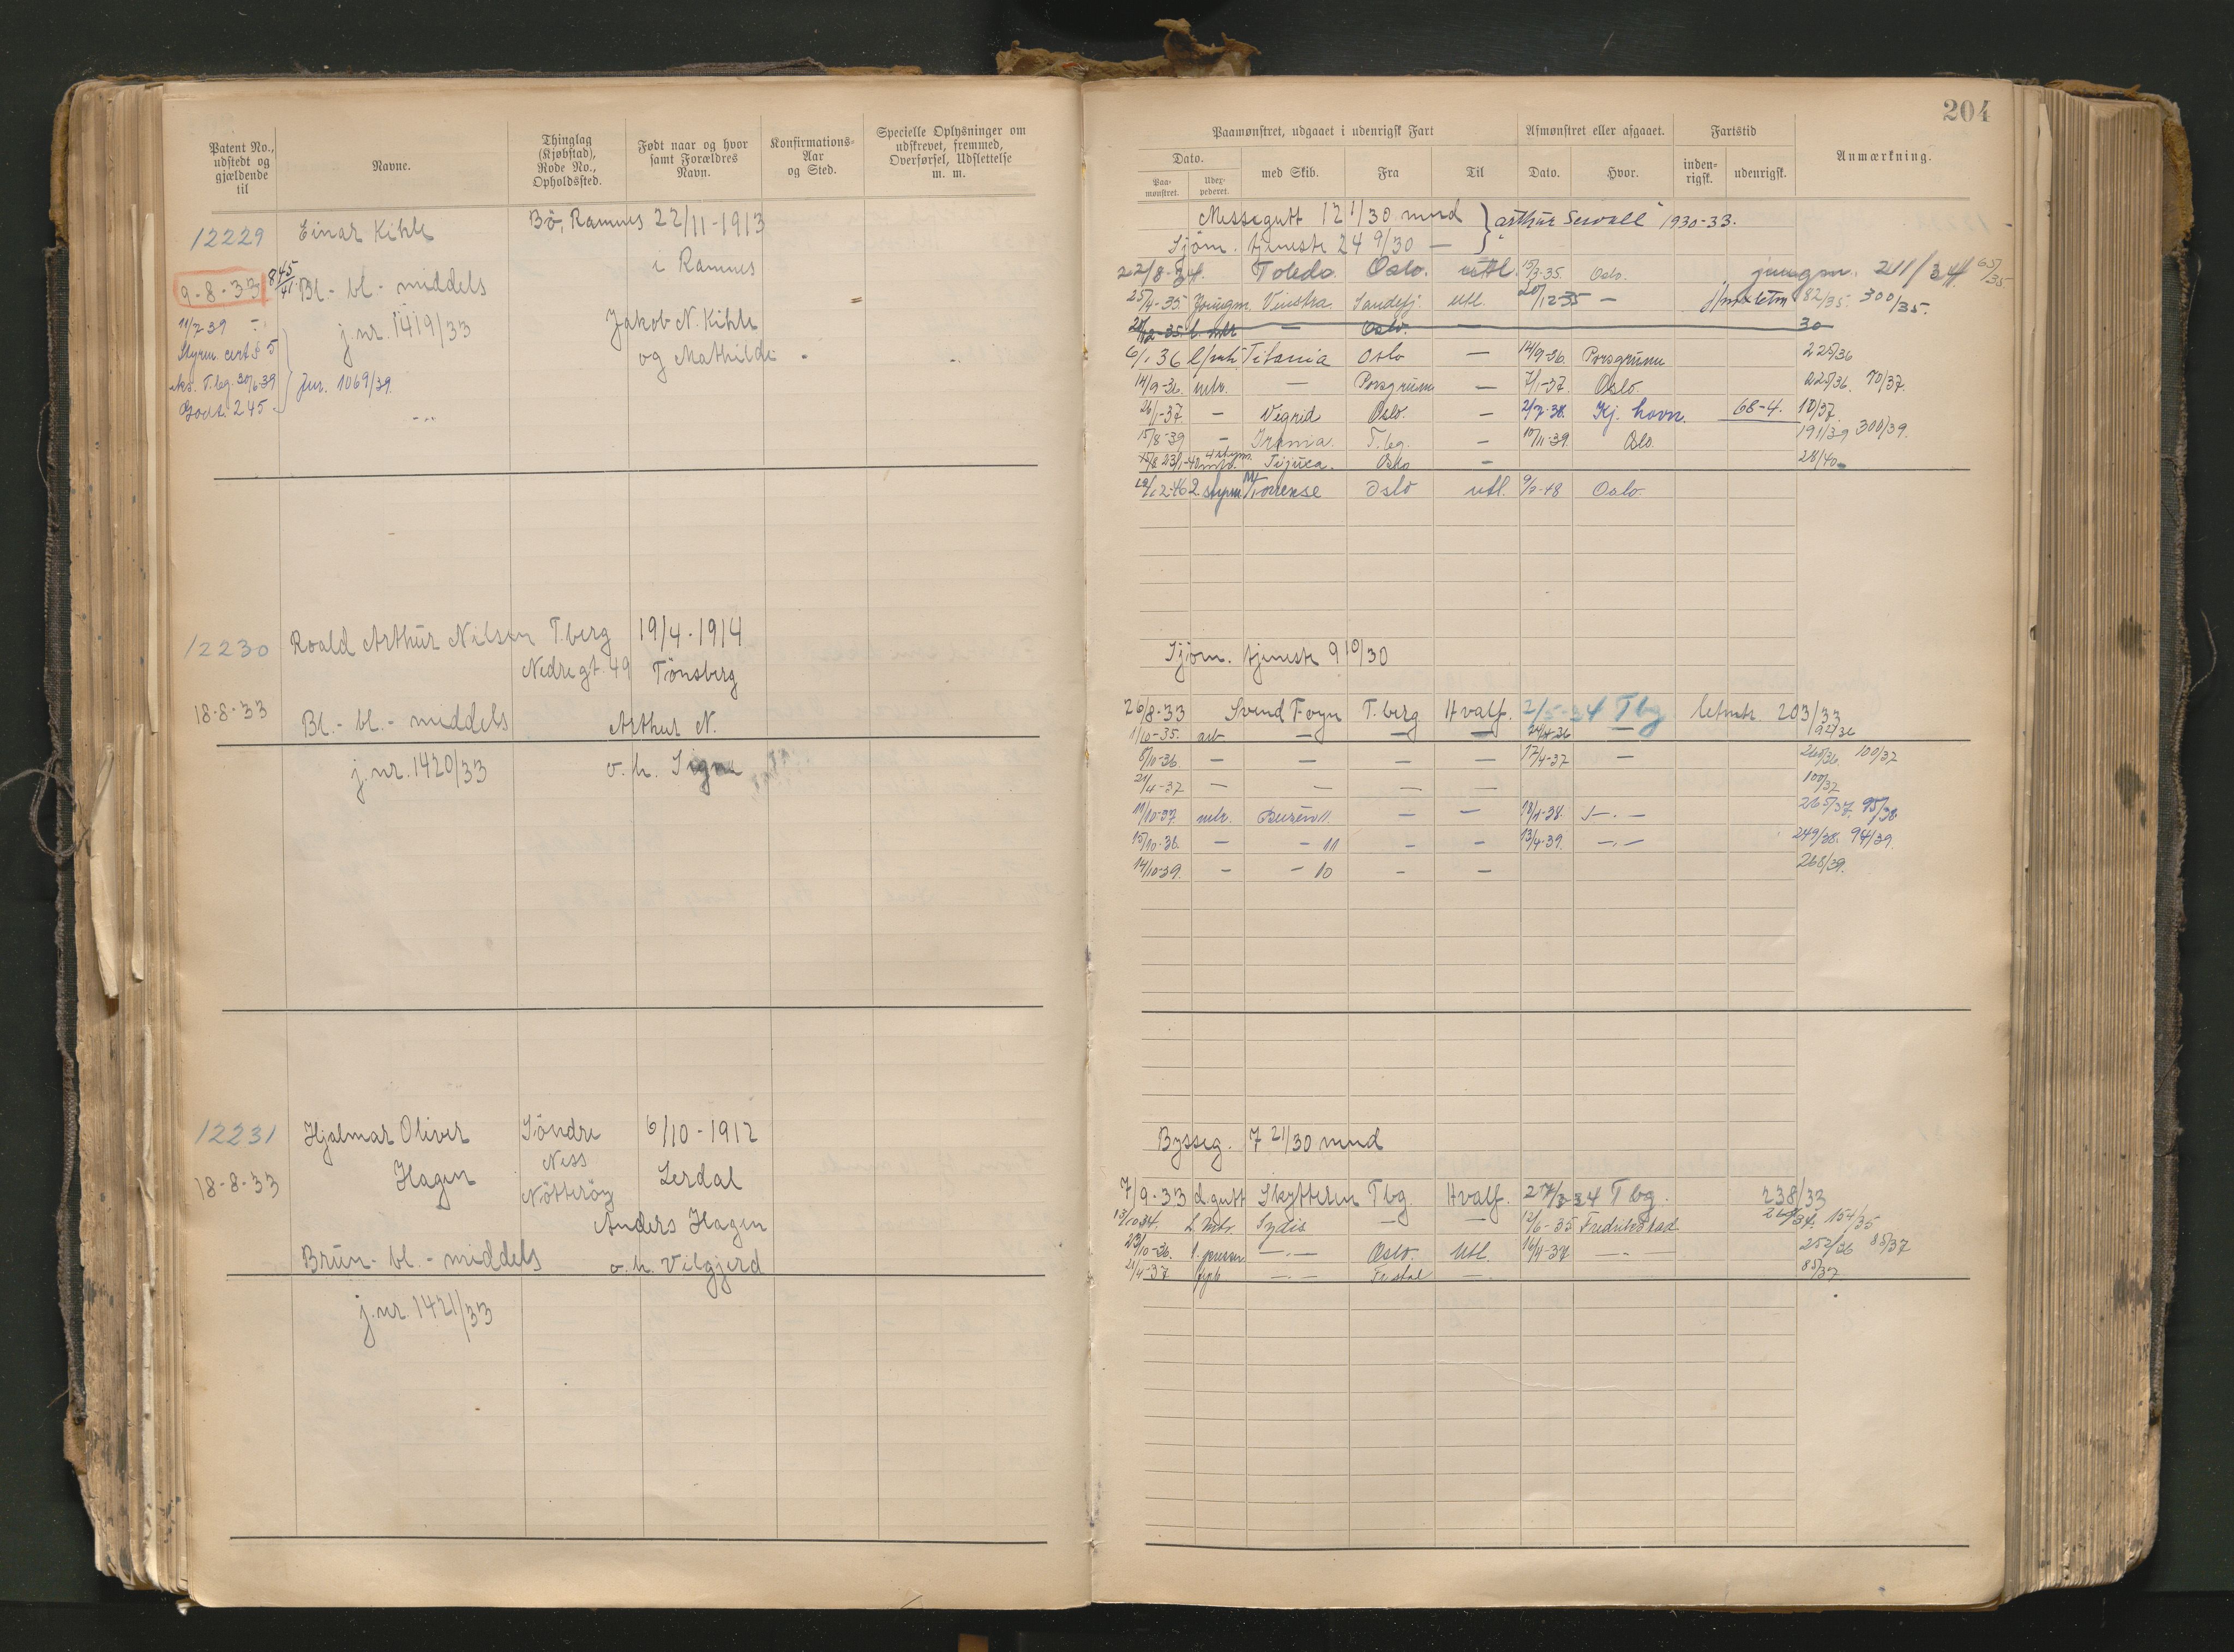 204
Patent No., udstedt og gjældende til
Navne.
Thinglag (Kjøbstad), Rode No., Opholdssted.
Født naar og hvor samt Forældres Navn.
Konfirmations-Aar og Sted.
Specielle Oplysninger om udskrevet, fremmed, Overførsel, Udslettelse m. m.
Paamønstret, udgaaet i udenrigsk Fart
Afmønstret eller afgaaet.
Fartstid
Anmærkning.
Dato.
Paa-mønstret.
Udex-pederet.
med Skib.
Fra
Til
Dato.
Hvor.
inden-rigsk.
udenrigsk.
12229 Einar Kihle Bö, Ramnes 22/11-1913
i Ramnes
9-8-33 Bl.- bl.- middels
j.nr. 1419/33 Jakob N. Kihle
og Mathilde
11/7 39
Styrm. cert § 5
T.bg. 30/6-39 Jnr. 1069/39
Godt. 245
Messegutt 12 1/30 mnd } "Arthur Sewall" 1930-33.
Sjöm. tjeneste 24 9/30 —
Toledo. Oslo. utl. 15/3-35. Oslo. jungm. 211/34 65/35
25/4-35 Jungm. Vinstra Sandefj. utl. 20/12-35 — 82/35 300/35.
Oslo. — 30
6/1 36 Titania Oslo — 14/9-36. Porsgrunn 225/36
14/9-36. mtr. — Porsgrunn — 7/1-37. Oslo 225/36. 10/37.
26/1-37. — Vigrid Oslo. — Kj. havn. 68-4. 10/37
15/8-39 — Irania. T.bg. — 10/11-39. Oslo. 191/39 300/39.
Tijuca. Oslo — 28/40.
2. styrm Torrense Oslo utl. Oslo.
12230 Roald Arthur Nilsen T.berg 19/4-1914
Nedregt. 49 Tönsberg
18-8-33 Bl.- bl.- middels Arthur N.
j.nr. 1420/33 o. h. Signe
Sjöm. tjeneste 9 10/30
26/8-33 Svend Foyn T.berg Hvalf. 2/5-34 Tbg letmtr. 203/33
1/10-35. arb — — — 24/4-36 — 92/36
8/10-36. — — — — 17/4-37 — 265/36. 100/37
21/4-37 — — — — 100/37
11/10-37. mtr. Busen 11. — — 18/4-38. —.— 265/37. 95/38
15/10-38. — — 11 — — 13/4-39. —.— 249/38. 94/39.
14/10-39. — — 10 — — 268/39.
12231 Hjalmar Oliver Söndre 6/10-1912
Ness
18-8-33 Hagen Nötteröy Lerdal
Anders Hagen
Brun- bl.- middels o. h. Vilgjerd
j.nr. 1421/33
Bysseg. 7 21/30 mnd
7/9-33 d.gutt Skytteren Tbg Hvalf. 27/3-34 Tbg. 238/33
13/10 34. L. Mtr. Sydis — — 12/6-35 Fredrikstad 154/35
23/10-36. —.— Oslo. Utl. 16/4-37 —.— 252/36 85/37
21/4-37 fyrb —.— Fr.stad —. 85/37